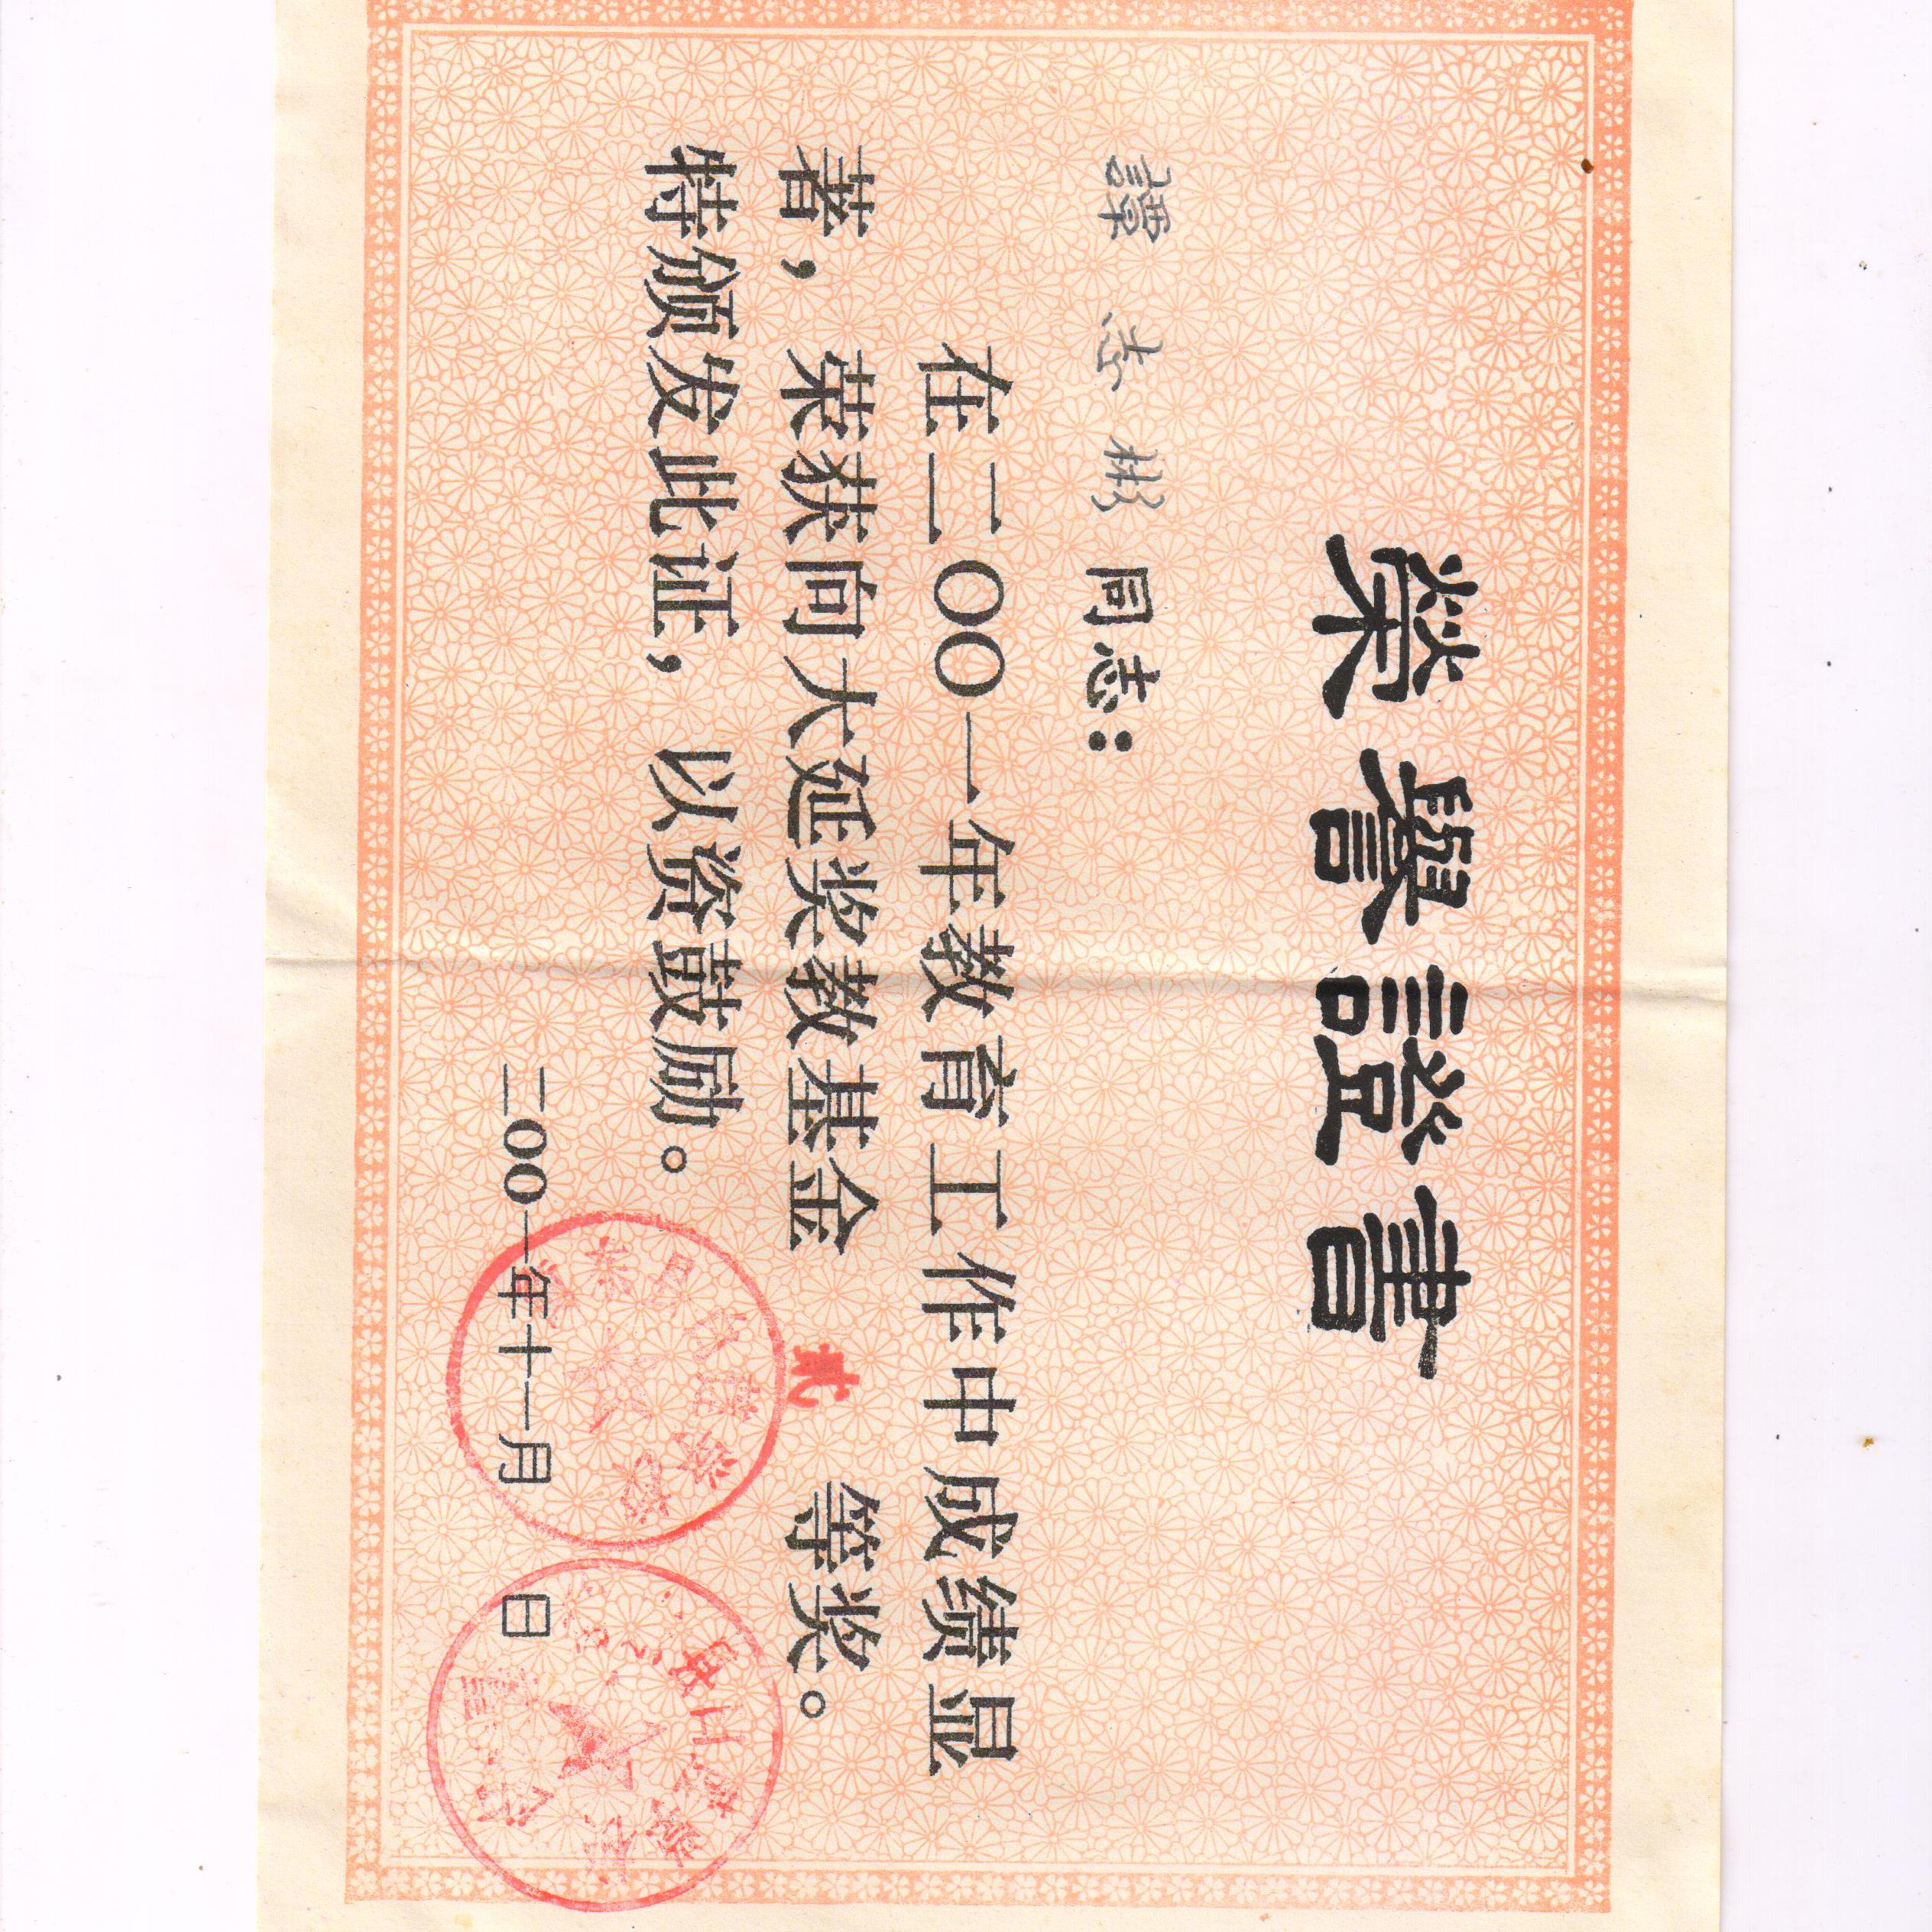 榮譽證書
譚志彬同志：
在二〇〇一年教育工作中成绩显
著，荣获向大延奖教基金 贰 等奖。
特颁发此证，以资鼓励。
二〇〇一年十一月 日